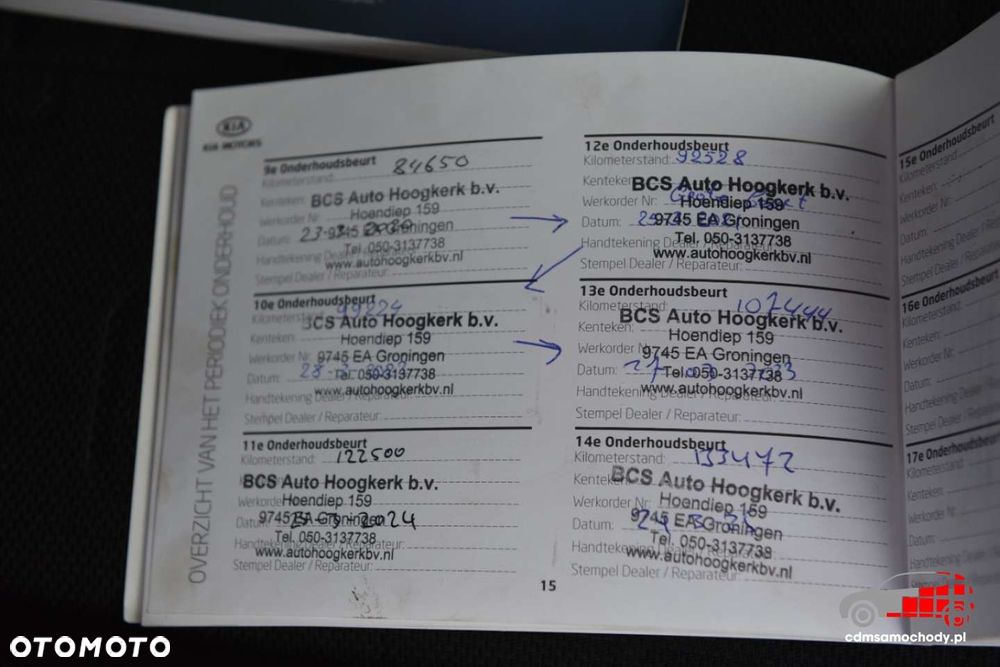 KIA
KIA MOTORS
OVERZICHT VAN HET PERIODIEK ONDERHOUD
9e Onderhoudsbeurt
Kilometerstand: 84650
Kenteken:
BCS Auto Hoogkerk b.v.
Werkorder Nr:
Hoendiep 159
Datum: 23-
9745 EA Groningen
Handtekening Dealer / Reparateur:
Tel. 050-3137738
www.autohoogkerkbv.nl
Stempel Dealer / Reparateur:
10e Onderhoudsbeurt
Kilometerstand: 99224
BCS Auto Hoogkerk b.v.
Kenteken:
Hoendiep 159
Werkorder Nr:
9745 EA Groningen
Datum: 28-
Tel. 050-3137738
Handtekening Dealer / Reparateur:
www.autohoogkerkbv.nl
Stempel Dealer / Reparateur:
11e Onderhoudsbeurt
Kilometerstand: 122500
BCS Auto Hoogkerk b.v.
Werkorder
Hoendiep 159
Datum 2024
9745 EA Groningen
Tel. 050-3137738
Handtekening Dealer / Reparateur:
www.autohoogkerkbv.nl
Stempel Dealer / Reparateur:
12e Onderhoudsbeurt
Kilometerstand: 92528
Kenteken:
BCS Auto Hoogkerk b.v.
Werkorder Nr: Grote Beurt
Hoendiep 159
Datum:
9745 EA Groningen
Handtekening Dealer / Reparateur:
Tel. 050-3137738
www.autohoogkerkbv.nl
Stempel Dealer / Reparateur:
13e Onderhoudsbeurt
Kilometerstand: 107444
BCS Auto Hoogkerk b.v.
Kenteken:
Hoendiep 159
Werkorder Nr:
9745 EA Groningen
Datum:
Tel. 050-3137738
Handtekening Dealer / Reparateur:
www.autohoogkerkbv.nl
Stempel Dealer / Reparateur:
14e Onderhoudsbeurt
Kilometerstand: 133472
Kenteken:
BCS Auto Hoogkerk b.v.
Werkorder Nr:
Hoendiep 159
Datum:
9745 EA Groningen
Tel. 050-3137738
Handtekening Dealer / Reparateur:
www.autohoogkerkbv.nl
Stempel Dealer / Reparateur:
15
15e Onderhoudsbeurt
Kilometerstand:
Kenteken:
Werkorder Nr:
Datum:
Handtekening
Stempel Dealer
16e Onderhoudsbeurt
Kilometerstand:
Kenteken:
Werkorder Nr:
Datum:
Handtekening
Stempel Dealer
17e Onderhoudsbeurt
Kilometerstand
Kenteken:
Werkorder Nr:
Datum:
OTOMOTO
cdmsamochody.pl